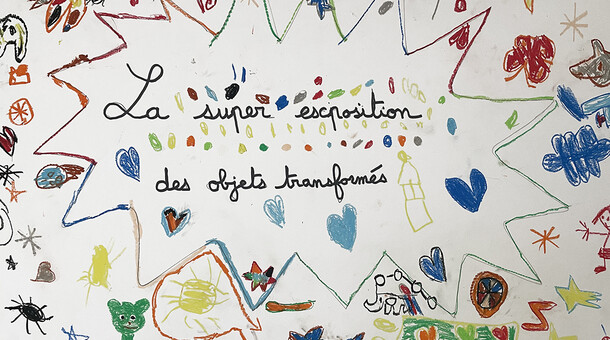 La super escposition
des objets transformés